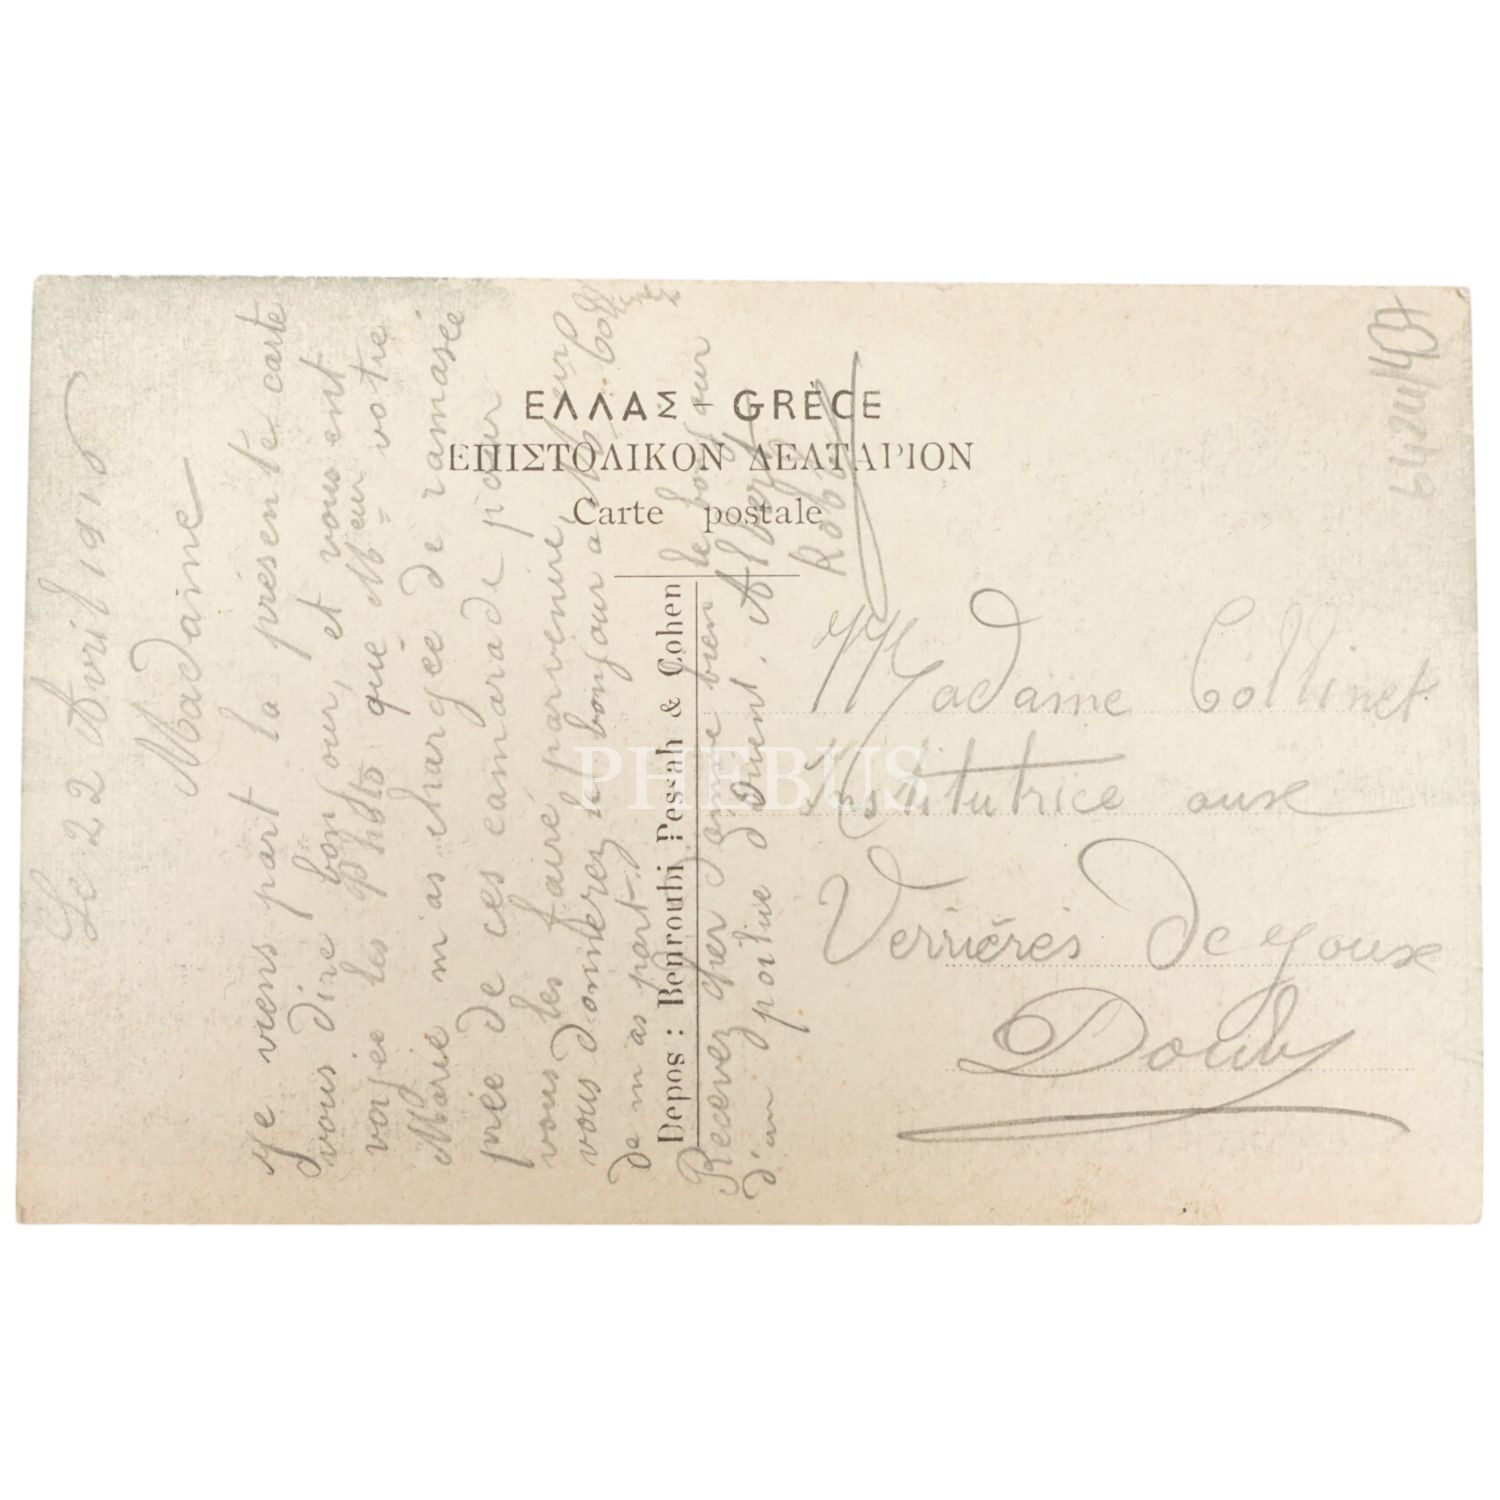 ΕΛΛΑΣ - GRÈCE
ΕΠΙΣΤΟΛΙΚΟΝ ΔΕΛΤΑΡΙΟΝ
Carte postale
Depos : Benroubi Pessah & Cohen
Le 22 Avril
Madame
Je viens part la présente carte
vous dire bonjour, et vous ent
voyée les Photo que Meur votre
Marie m'as chargée de ramasée
priée de ces camarade pour
vous les faire parvenire,
vous donnerez le bonjour a
de m'as part.
Recevez cher Dame bien le bonjour
d'un poilue d'orient. Albert
Robe
Madame Collinet
Institutrice aux
Verrières De Joux
Doubs
PHEBUS